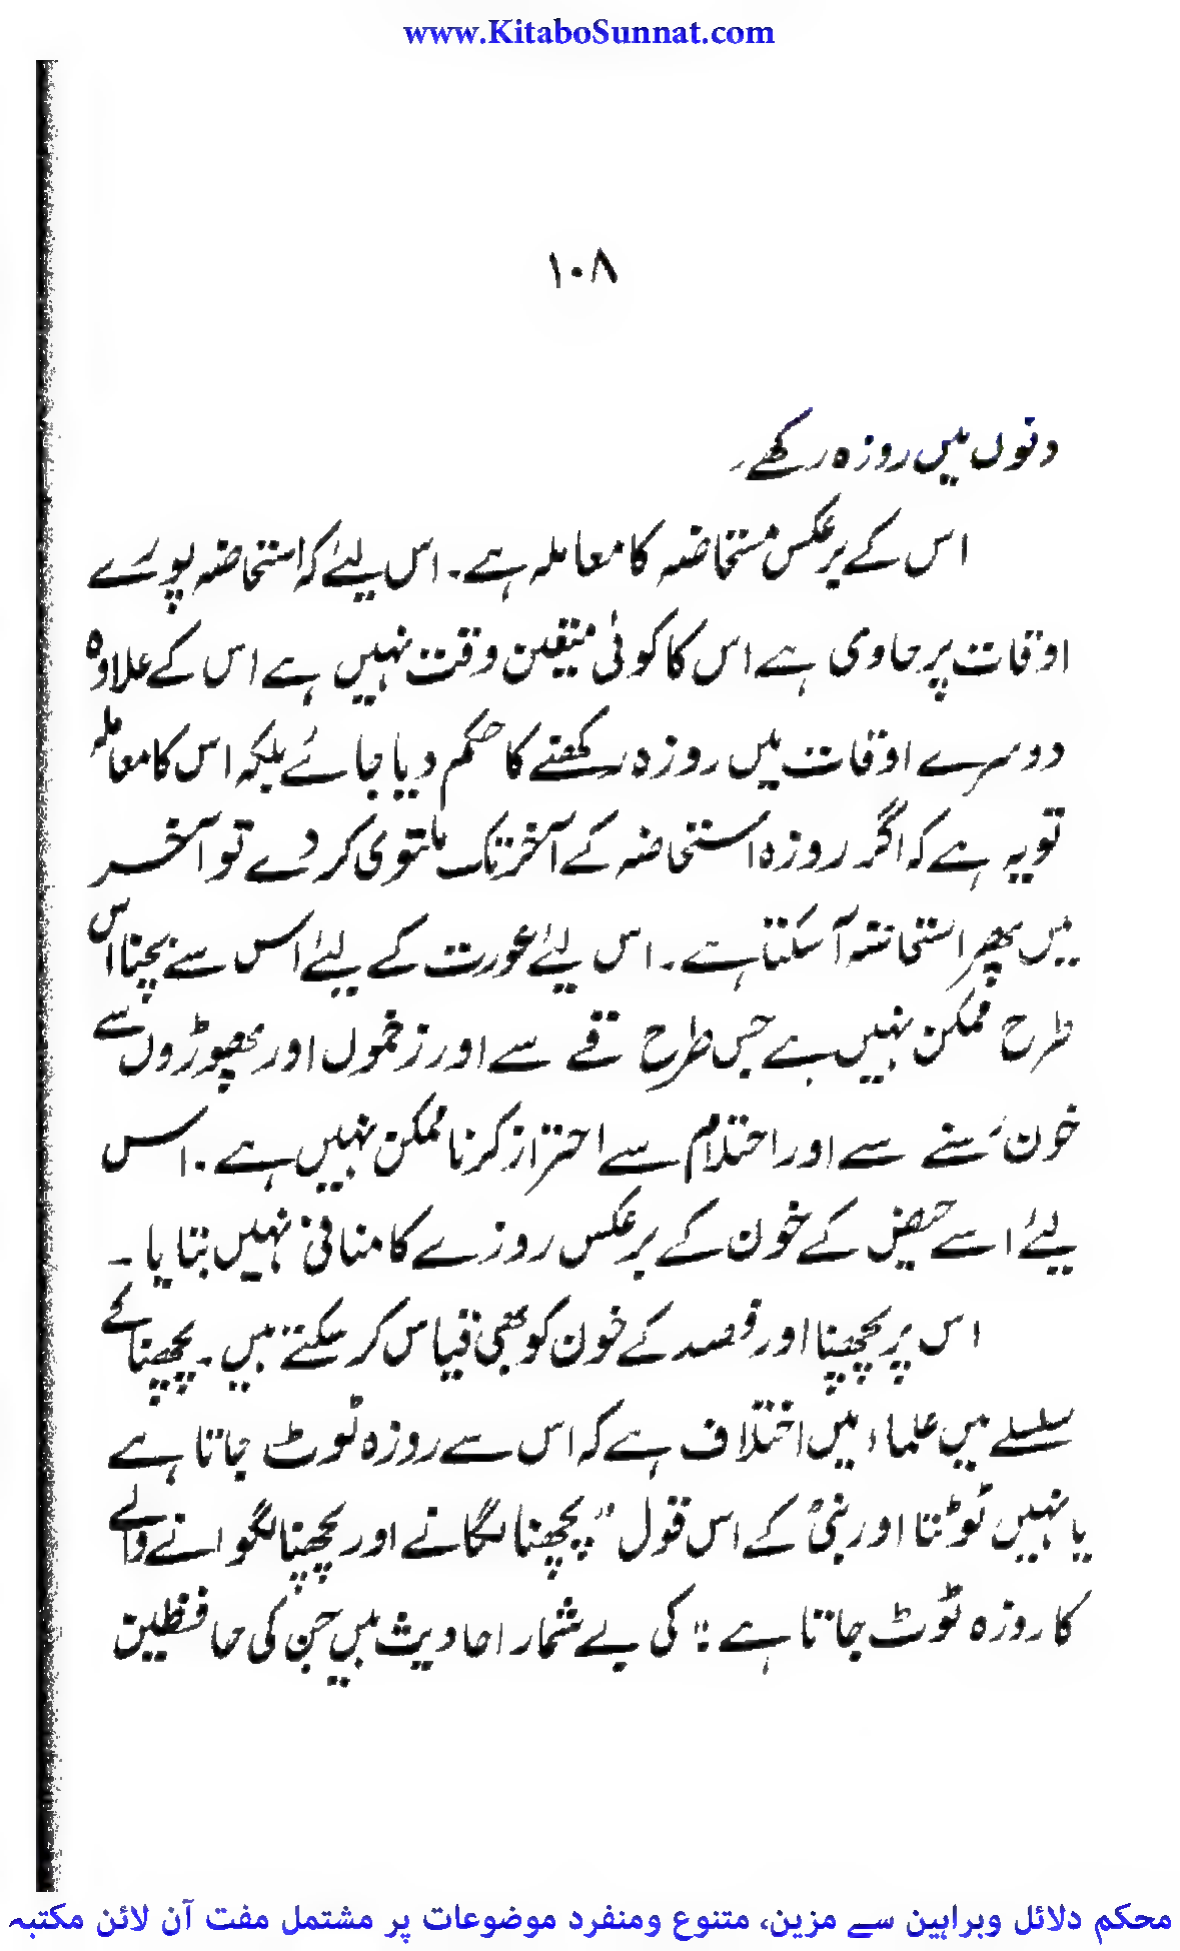 www.KitaboSunnat.com
۱۰۸
دنوں میں روزہ رکھے۔
اس کے برعکس مستحاضہ کا معاملہ ہے۔ اس لیئے کہ استحاضہ پورے
اوقات پر حاوی ہے اس کا کوئی متیقین وقت نہیں ہے اس کے علاوہ
دوسرے اوقات میں روزہ رکھنے کا حکم دیا جائے بلکہ اس کا معاملہ
تو یہ ہے کہ اگر روزہ استحاضہ کے آخر تک ملتوی کر دے تو آخر
میں پھر استحاضہ آ سکتا ہے۔ اس لیئے عورت کے لیئے اس سے بچنا اس
طرح ممکن نہیں ہے جس طرح قے سے اور زخموں اور پھوڑوں سے
خون رسنے سے اور احتلام سے احتراز کرنا ممکن نہیں ہے۔ اس
لیئے اسے حیض کے خون کے برعکس روزے کا منافی نہیں بتایا۔
اس پر پچھپنا اور فصد کے خون کو بھی قیاس کر سکتے ہیں۔ پچھپنا کے
سلسلے میں علماء میں اختلاف ہے کہ اس سے روزہ ٹوٹ جاتا ہے
یا نہیں ٹوٹتا اور نبیؐ کے اس قول "پچھنا لگانے اور پچھپنا لگوانے والے
کا روزہ ٹوٹ جاتا ہے" کی بے شمار احادیث ہیں جن کی حافظین
محکم دلائل وبراہین سے مزین، متنوع ومنفرد موضوعات پر مشتمل مفت آن لائن مکتبہ